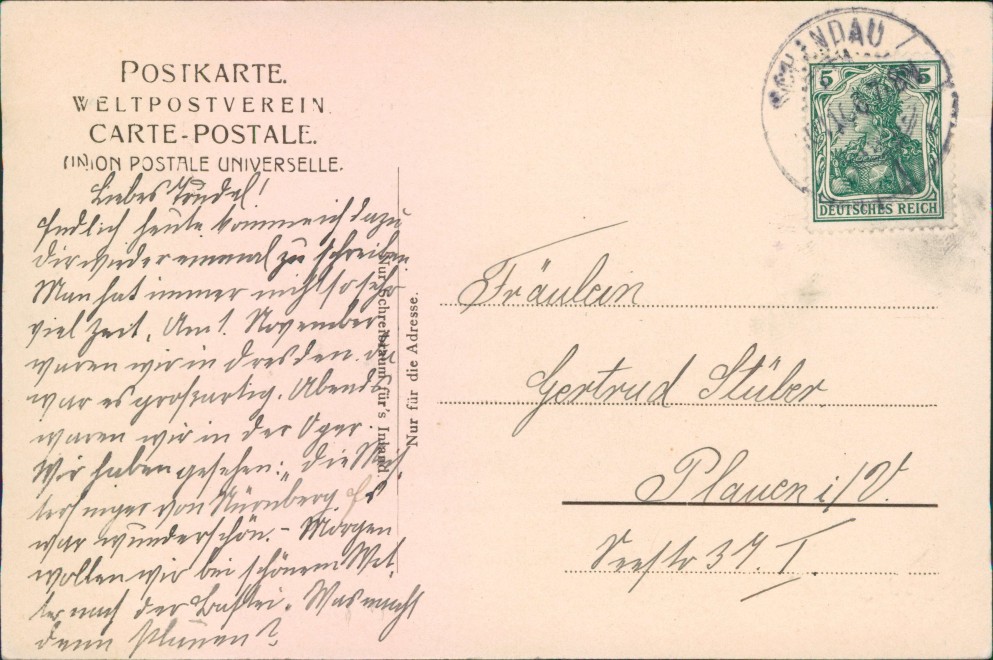 POSTKARTE.
WELTPOSTVEREIN.
CARTE-POSTALE.
UNION POSTALE UNIVERSELLE.
Liebes Trudel!
Endlich heute komme ich dazu
Dir wieder einmal zu schreiben.
Man hat immer nicht so sehr
viel Zeit. Am 1. November
waren wir in Dresden. da
war es großartig. Abends
waren wir in der Oper.
Wir haben gesehen: "Die Meis-
tersinger von Nürnberg. Es
war wunderschön. - Morgen
wollen wir bei schönem Wet-
ter nach der Bastei. Was macht
denn Plauen?
Nur Schreibraum für's Inland.
Nur für die Adresse.
SCHANDAU
5 5
DEUTSCHES REICH
Fräulein
Gertrud Stüber
Plauen i/V.
Seestr 37. I.